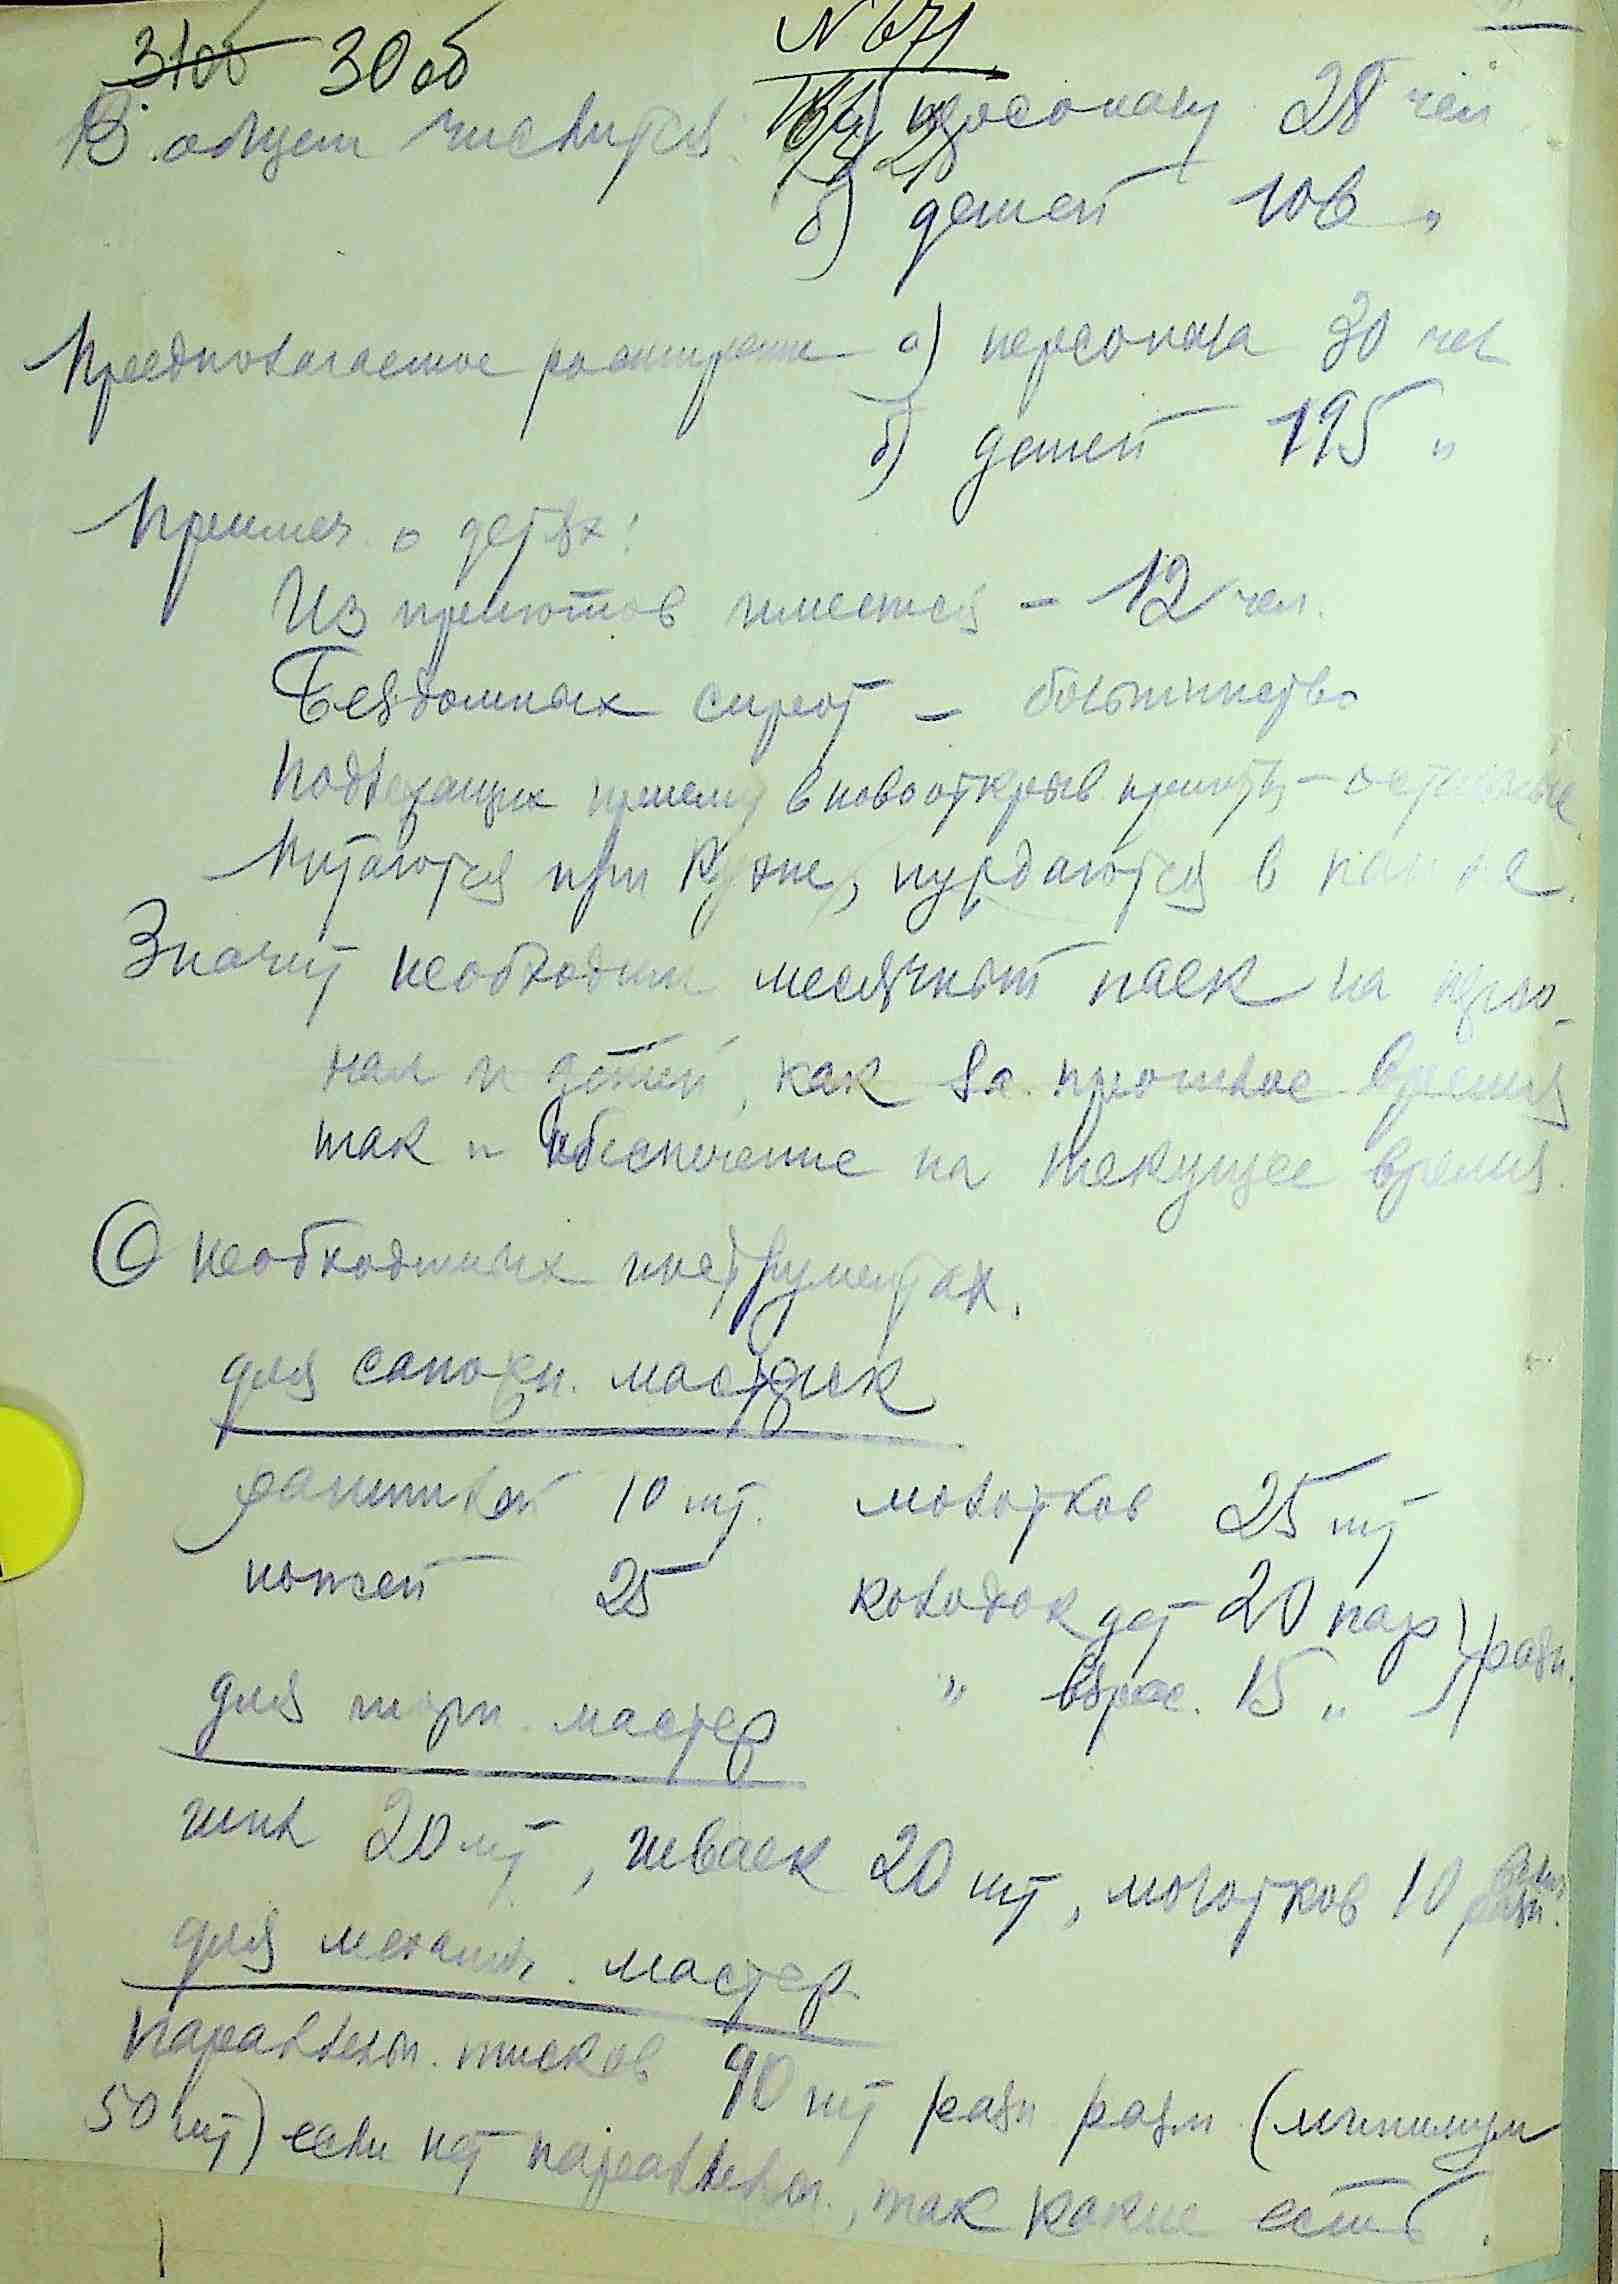 31об 30об № 671
В общем числится: а) персоналу 28 чел
б) детей 106 "
Предполагаемое расширение а) персонала 30 чел
б) детей 195 "
Примеч. о детях:
Из приютов имеется – 12 чел.
Бездомных сирот – большинство
Подлежащих приему в новооткрыв. приюты – остальные.
Питаются при кухне, нуждаются в пайке.
Значит необходим месячный паек на персо-
нал и детей, как за прошлое время
так и обеспечение на текущее время.
О необходимых инструментах.
для сапожн. мастерск
рашпилей 10 шт. молотков 25 шт
ножей 25 колодок дет 20 пар } разн.
" взрос. 15 "
для мастер
шил 20 шт, шваек 20 шт, молотков 10 разн.
для механич. мастер
параллельн. тисков 90 шт разн разм. (минимум
50 шт) если нет параллельн., так какие есть.